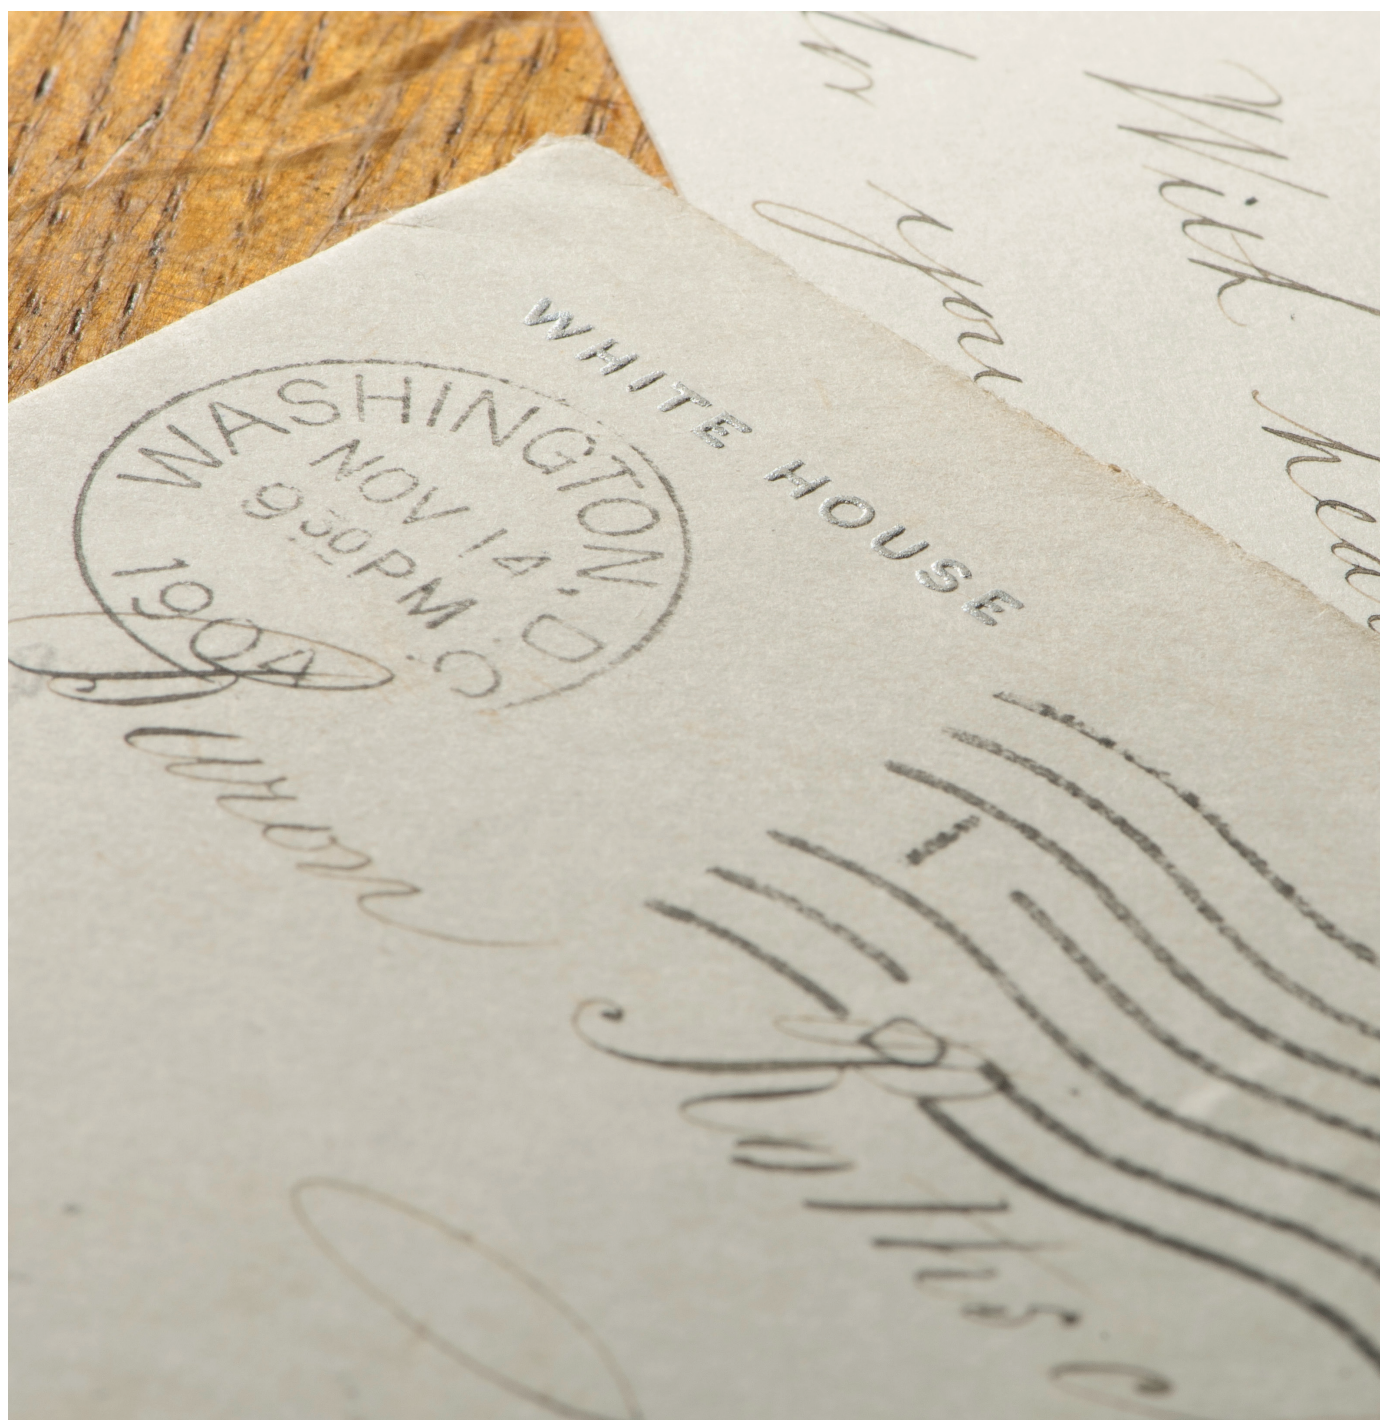 With
you
WHITE HOUSE
WASHINGTON, D.C.
NOV 14
9 30 PM
1904
Baron
Rothsc